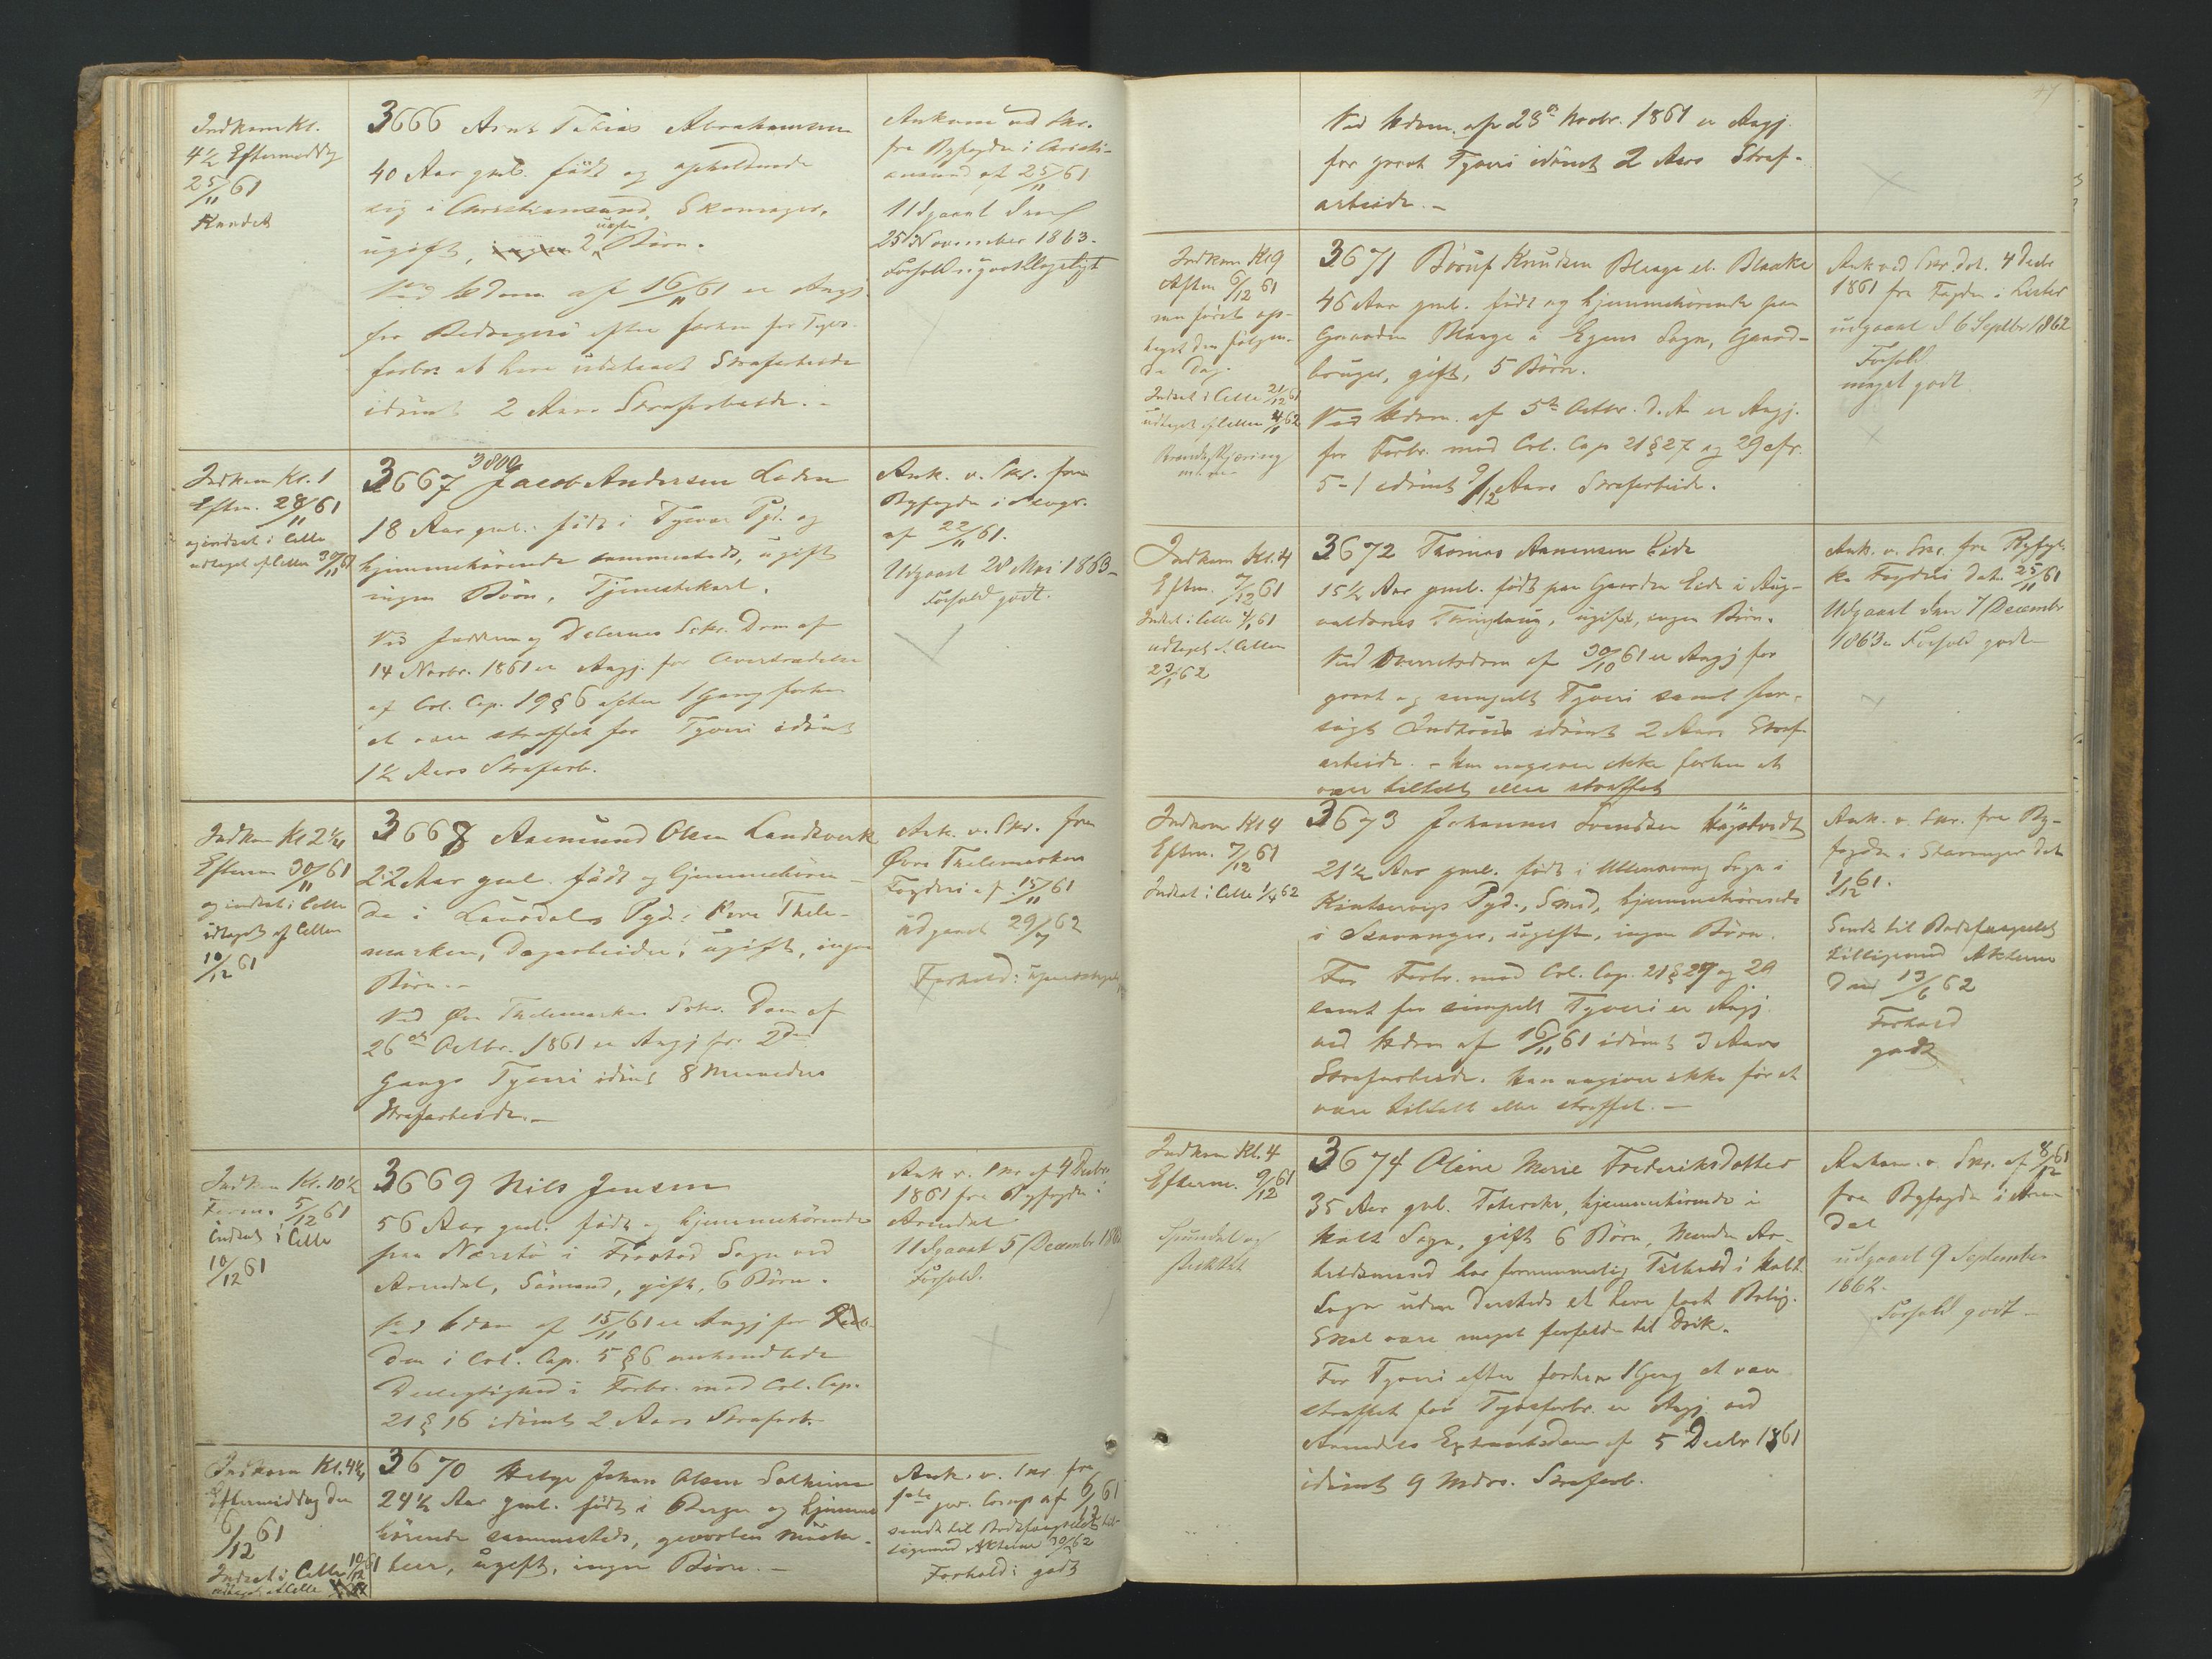 Indkom Kl.
4½ Eftermiddg
25/11 61
3666 Arnt Tobias Abrahamsen
40 Aar gml. født og opholdende
sig i Christiansund, Skomager,
ugift, 2 uægte Børn.
Ved Hdom af 16/11 61 er Angj.
for Bedrageri efter forhen for Tyvs-
forbr. at have udstaaet Strafarbeide
idømt 2 Aars Strafarbeide. -
Ankom ved Skr.
fra Byfogden i Christi-
ansund af 25/11 61
Udgaaet den
25 November 1863.
Forhold
Indkom Kl. 1
Eftm. 28/11 61
og indsat i Celle
udtaget af Cellen 30/11 61
3800
3667 Jacob Andersen Laden
18 Aar gml. født i Tysvær Pgd. og
hjemmehørende sammesteds, ugift
ingen Børn, Tjenestekarl.
Ved Jæderen og Dalernes Sskr. Dom af
14 Novbr. 1861 er Angj. for Overtrædelse
af Crl. Cap. 19 § 6 efter 1 Gang forhen
at være straffet for Tyveri idømt
1½ Aars Strafarb.
Ank. v. Skr. fra
Byfogden i
af 22/11 61.
Udgaaet 28 Mai 1863
Forhold godt.
Indkom Kl 2¼
Efterm 30/11 61
og indsat i Celle
udtaget af Cellen
10/12 61
3668 Aasmund Olsen Landsverk
22 Aar gml. født og hjemmehøren-
de i Laurdals Pgd. i Øvre Thele-
marken, Dagarbeider, ugift, ingen
Børn. -
Ved Øvr Thelemarkens Sskr. Dom af
26de Octbr. 1861 er Angj for 2den
Gangs Tyveri idømt 8 Maaneders
Strafarbeide. -
Ank. v. Skr. fra
Øvre Thelemarkens
Fogderi af 15/11 61
udgaaet 29/7 62
Forhold:
Indkom Kl. 10½
Form. 5/12 61
Indsat i Celle
10/12 61
3669 Nils Jensen
56 Aar gml. født og hjemmehørende
paa Nærstø i Frostad Sogn ved
Arendal, Sømand, gift, 6 Børn.
Ved Hdom af 15/11 61 er Angj for
den i Crl. Cap. 5 § 6 omhandlede
Deelagtighed i Forbr. mod Crl. Cap.
21 § 16 idømt 2 Aars Strafarb.
Ank v. Skr af 4 Decbr
1861 fra Byfogden i
Arendal
Udgaaet 5 Decembr 1863
Forhold.
Indkom Kl. 4½
Eftermiddag den
6/12 61
Indsat i Celle 10/12 61
udtaget af Celle
3670 Helge Johan Olsen Solheim
24½ Aar gml. født i Bergen og hjemme
hørende sammesteds, gevorben Muske-
teer, ugift, ingen Børn. -
Ank. v. Skr fra
af 6/12 61
sendt til Bodsfængslet til-
ligemed Akterne 30/ 62
Forhold: godt
Ved Hdom. af 28de Novbr. 1861 er Angj.
for grovt Tyveri idømt 2 Aars Straf-
arbeide. -
Indkom Kl 9
Aften 6/12 61
men først op-
taget den følgen-
de Dag.
Indsat i Celle 21/12 61
udtaget af Cellen 4/ 62
3671 Børuf Knudsen Blaage el. Blaake
46 Aar gml. født og hjemmehørende paa
Gaarden Blaage i Egens Sogn, Gaard-
bruger, gift, 5 Børn.
Ved Hdom. af 5te Octbr. d. A. er Angj.
for Forbr. mod Crl. Cap 21 § 27 og 29 cfr.
5-1 idømt 9/12 Aars Strafarbeide.
Ank ved Skr. dat. 4 Decbr
1861 fra Fogden i Lister
udgaaet d 6 Septbr 1862
Forhold
meget godt
Indkom Kl. 4
Eftm. 7/12 61
Indsat i Celle 4/ 61
udtaget f. Cellen
23/1 62
3672 Thomas Aanensen Eide
15½ Aar gml. født paa Gaarden Eide i Aug-
valdsnes Thinglaug, ugift, ingen Børn.
Ved Overretsdom af 30/10 61 er Angj for
grovt og simpelt Tyveri samt for-
søgt Indbrud idømt 2 Aars Straf-
arbeide. - Han angiver ikke forhen at
være tiltalt eller straffet
Ank. v. Skr. fra Ryfyl-
ke Fogderi dat. 25/11 61
Udgaaet den 7 Decembr
1863. Forhold godt
Indkom Kl 4
Eftm. 7/12 61
Indsat i Celle 1/4 62
3673 Johannes Svendsen
21½ Aar gml. født i Ullensvang Sogn i
Kintservigs Pgd., Smed, hjemmehørende
i Stavanger, ugift, ingen Børn.
For Forbr. mod Crl. Cap. 21 § 27 og 29
samt for simpelt Tyveri er Angj.
ved Hdom af 16/11 61 idømt 3 Aars
Strafarbeide. Han angiver ikke før at
være tiltalt eller straffet. -
Ank. v. Skr. fra By-
fogden i Stavanger dat
1/12 61.
Sendt til Bodsfængslet
tilligemed Akterne
den 13/6 62
Forhold
godt
Indkom Kl. 4
Efterm. 9/12 61
3674 Oline Marie Frederiksdatter
35 Aar gml. Taterske, hjemmehørende i
Holt Sogn, gift 6 Børn, Manden Ar-
beidsmand har fornemmelig Tilhold i Holt
Sogn uden dersteds at have fast Bolig.
Skal være meget forfalden til Drik.
For Tyveri efter forhen 1 Gang at være
straffet for Tyvsforbr. er Angj. ved
Arendals Extraretsdom af 5 Decbr 1861
idømt 9 Mdrs. Strafarb.
Ankom. v. Skr. af 8/12 61
fra Byfogden i Aren
dal
udgaaet 9 September
1862.
Forhold godt -